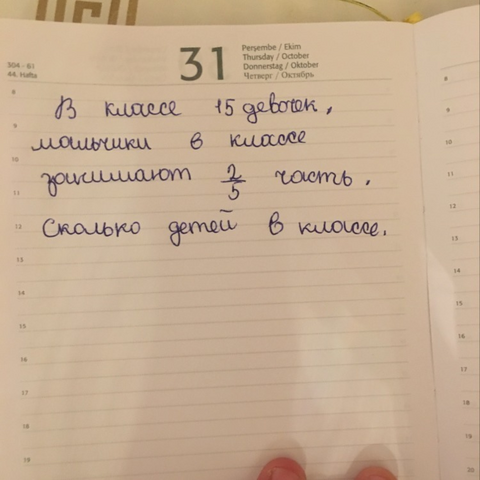 304 - 61
44. Hafta
31
Perşembe / Ekim
Thursday / October
Donnerstag / Oktober
Четверг / Октябрь
8
В классе 15 девочек,
9
мальчики в классе
10
занимают 2/5 часть.
11
Сколько детей в классе.
12
13
14
15
16
17
18
19
8
9
10
11
12
13
14
15
16
17
18
19
20